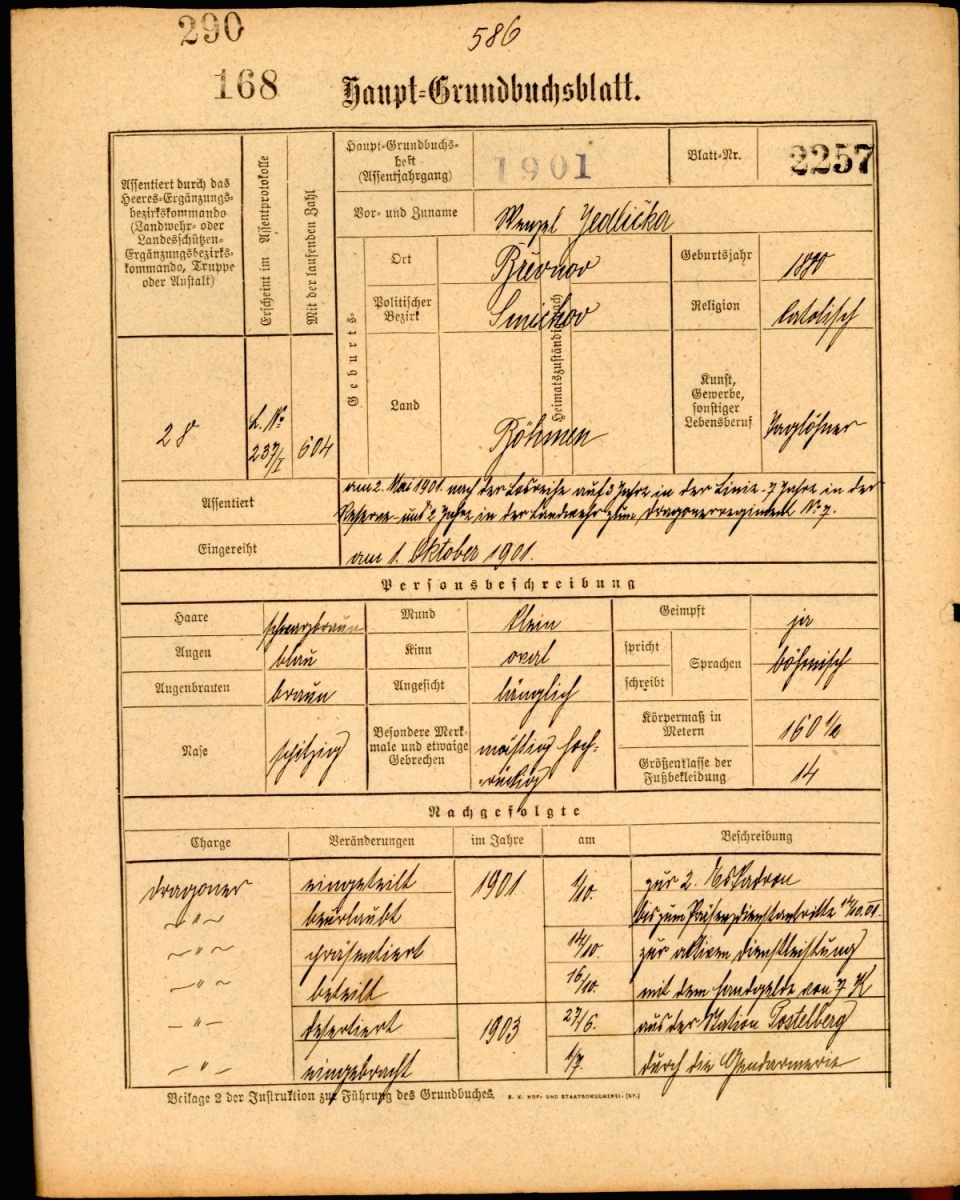 290
586
168
Haupt-Grundbuchsblatt.
Assentiert durch das
Heeres-Ergänzungs-
bezirkskommando
(Landwehr- oder
Landesschützen-
Ergänzungsbezirks-
kommando, Truppe
oder Anstalt)
Erscheint im Assentprotokolle
Mit der laufenden Zahl
Haupt-Grundbuchs-
heft
(Assentjahrgang)
1901
Blatt-Nr.
2257
Vor- und Zuname
Wenzel Jedlička
Geburts-
Ort
Břevnov
Geburtsjahr
1880
Politischer
Bezirk
Smichov
Heimatszuständig nach
Religion
katolisch
Land
Böhmen
Kunst,
Gewerbe,
sonstiger
Lebensberuf
Taglöhner
28
L. No
237/I
604
Assentiert
am 2. Mai 1901. nach der Losreihe auf 3 Jahre in der Linie 7 Jahre in der
Reserve und 2 Jahre in der Landwehr zum Dragonerregiment No 7.
Eingereiht
am 1. Oktober 1901.
Personsbeschreibung
Haare
schwarzbraun
Mund
klein
Geimpft
ja
Augen
blau
Kinn
oval
spricht
schreibt
Sprachen
böhmisch
Augenbrauen
braun
Angesicht
länglich
Nase
spitzig
Besondere Merk-
male und etwaige
Gebrechen
mäßig hoch-
rückig
Körpermaß in
Metern
160 1/2
Größenklasse der
Fußbekleidung
14
Nachgefolgte
Charge
Veränderungen
im Jahre
am
Beschreibung
Dragoner
eingeteilt
1901
1/10.
zur 2. Eskadron
~ " ~
beurlaubt
bis zum Präsenzdienstantritte 14/10.01.
~ " ~
präsentiert
14/10.
zur aktiven Dienstleistung
~ " ~
beteilt
16/10.
mit dem Handgelde von 7 K
— " —
desertiert
1903
27/6.
aus der Station Postelberg
— " —
eingebracht
1/7.
durch die Gendarmerie
Beilage 2 der Instruktion zur Führung des Grundbuches. K. K. HOF- UND STAATSDRUCKEREI. (ST.)